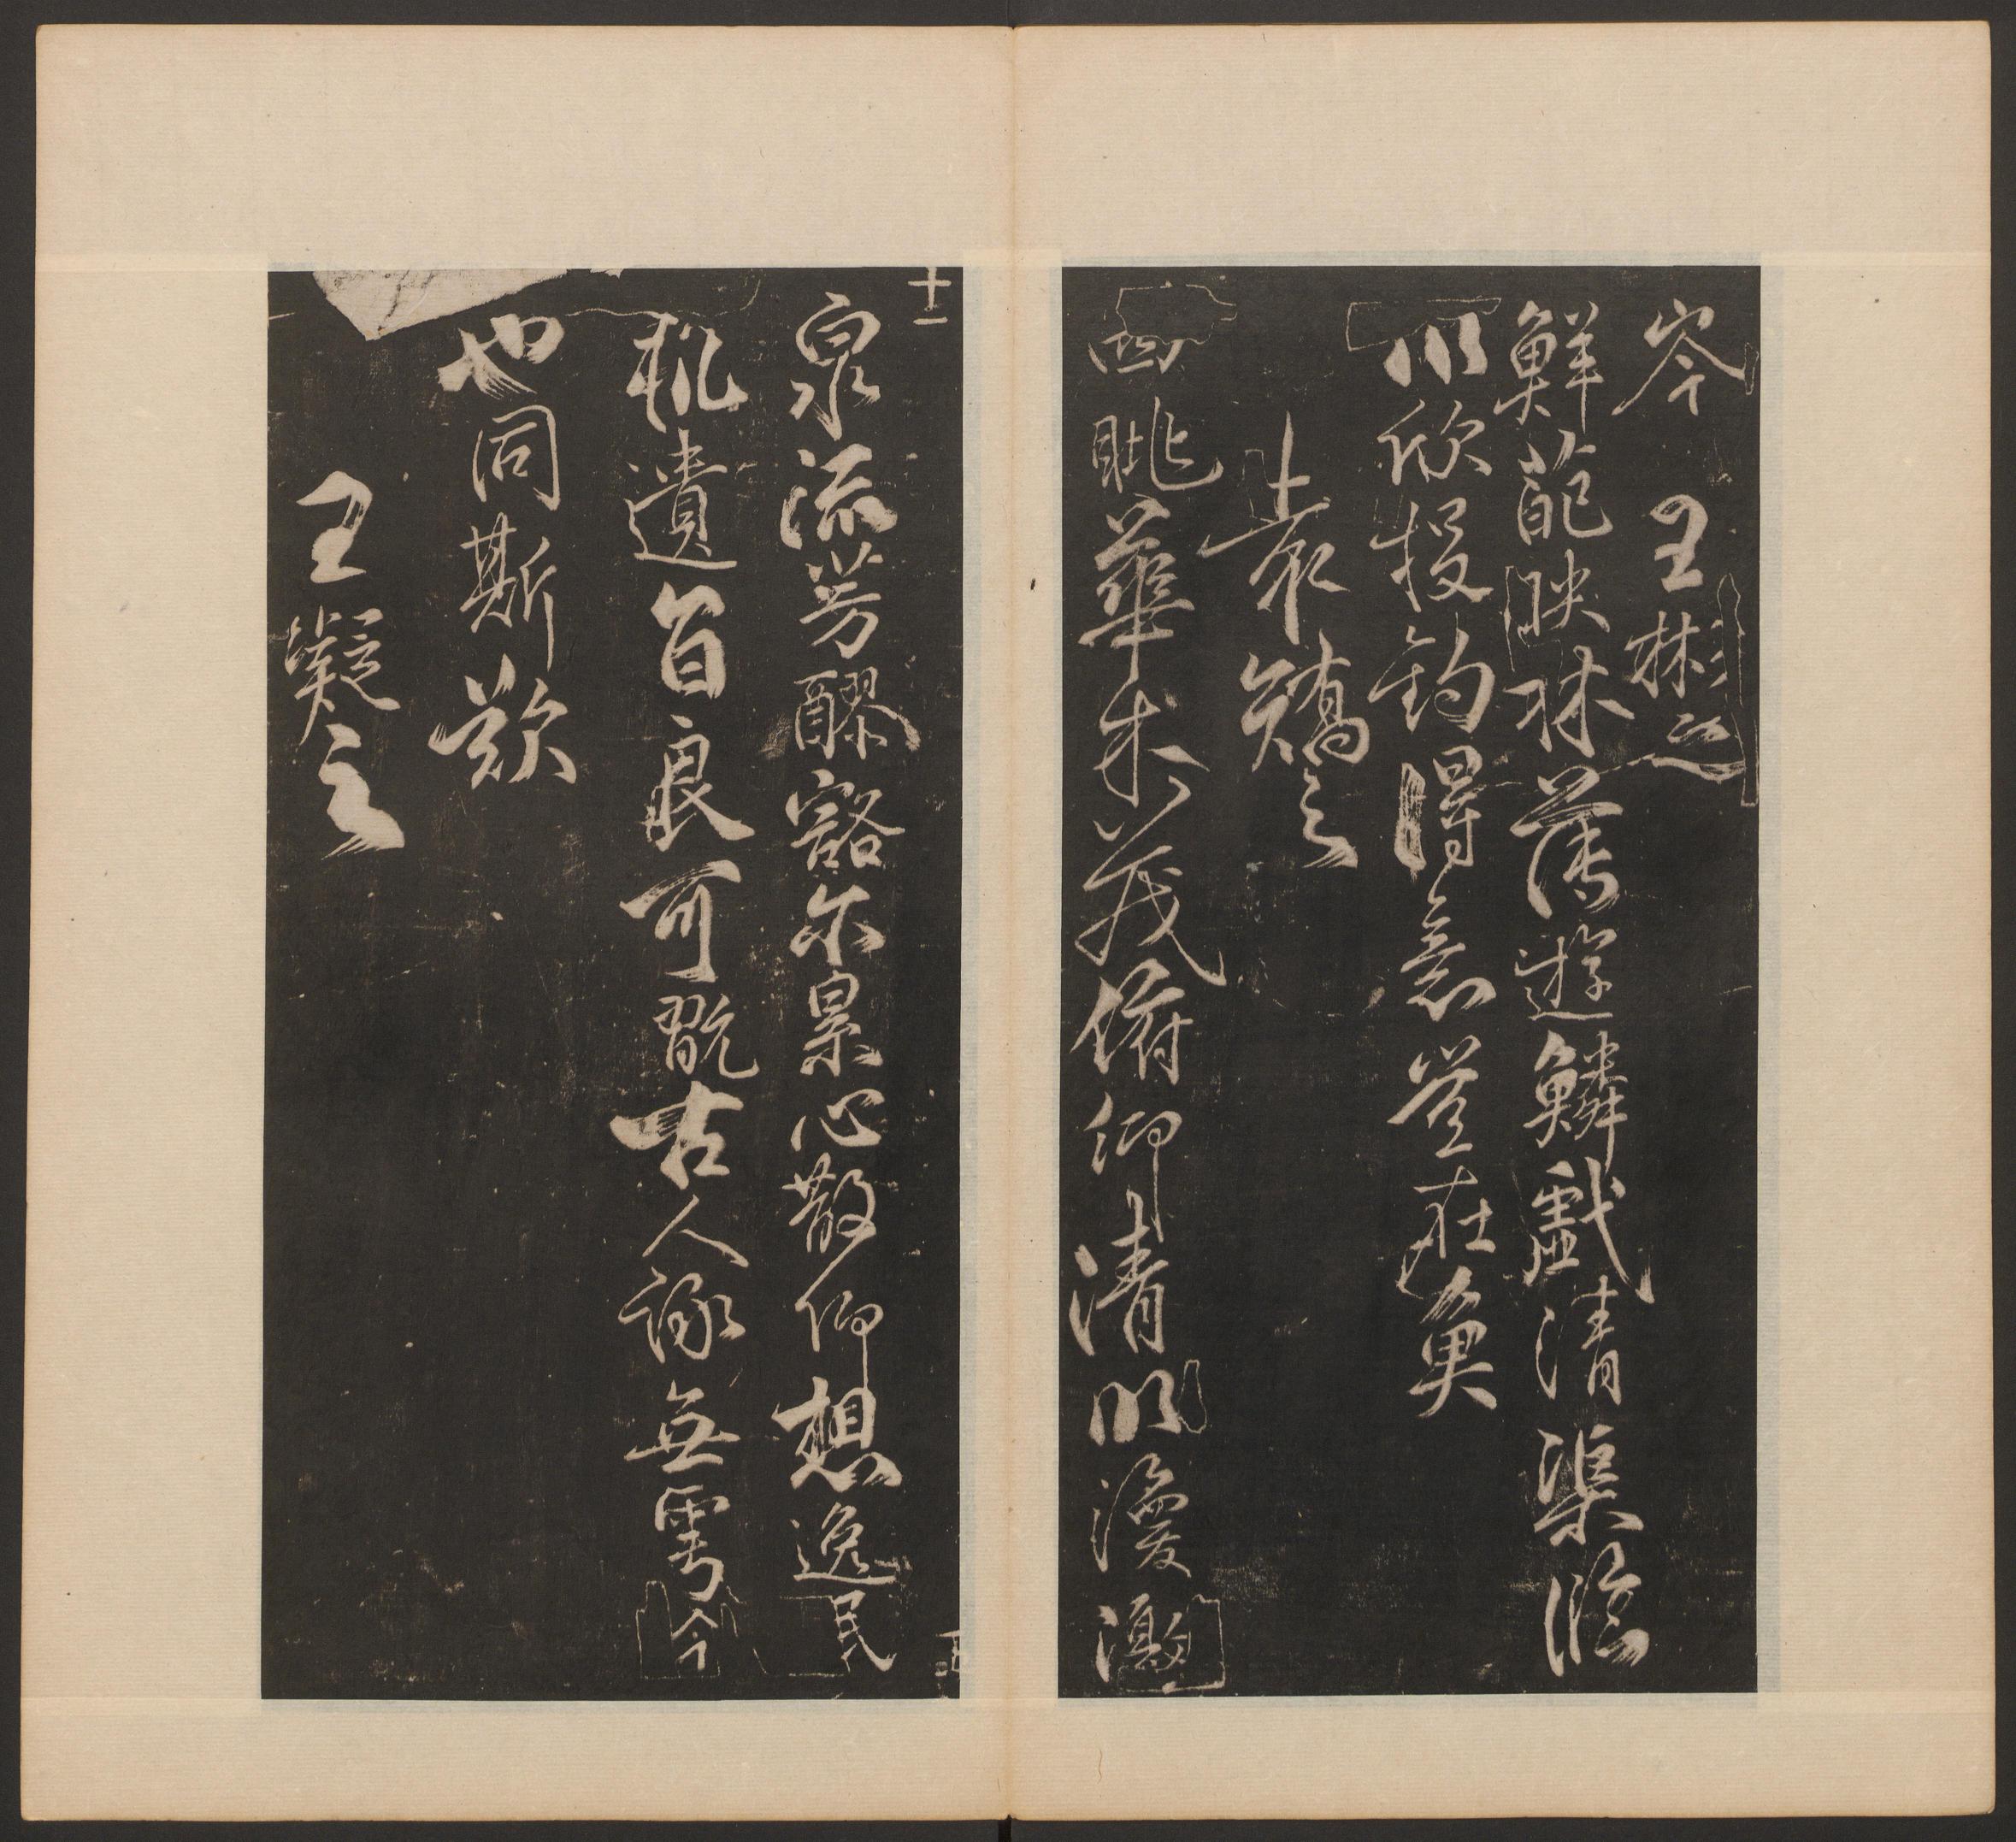 岑 王彬之
鮮葩映林薄遊鱗戲清渠臨
川欣投釣得意豈在魚
袁矯之
四眺華林茂俯仰清川渙激
十一
泉流芳醪豁尒累心散仰想逸民
軌遺旨良可翫古人詠無雩今
也同斯歡
王凝之